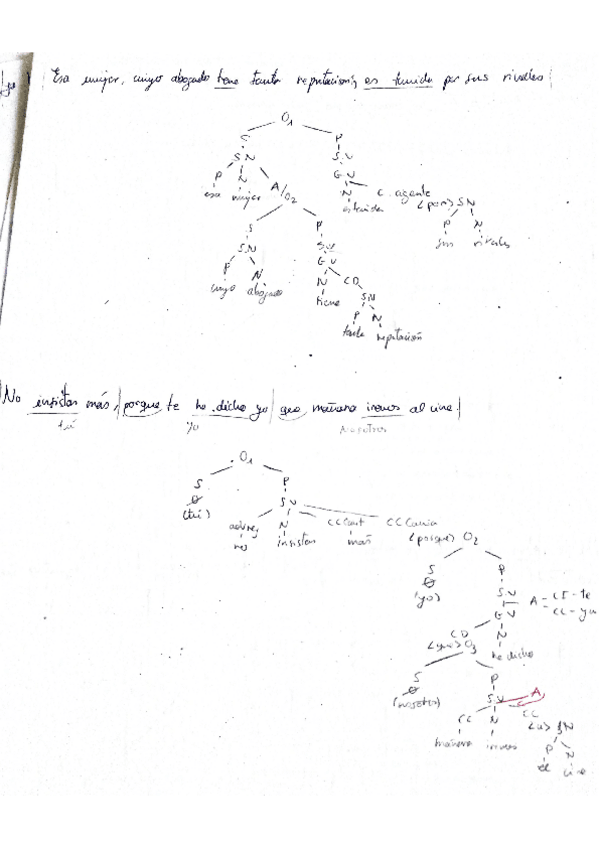 Esa mujer, cuyo abogado tiene tanta reputación, es temida por sus rivales
O1
S P
SN SV
P N GV
esa mujer A/O2 N C. agente
es temida (por) SN
S P P N
SN SV sus rivales
P N GV
cuyo abogado N CD
tiene SN
P N
tanta reputación
No insistas más, porque te he dicho yo que mañana iremos al cine.
tú yo nosotros
O1
S P
Ø SV
(tú) N CCCant CCCausa
no insistas más (porque) O2
S P
Ø SV A CI-te
(yo) GV
CD N
(que) O3 he dicho
S P
Ø SV A
(nosotros) CC N CC
mañana iremos (a) SN
P N
el cine